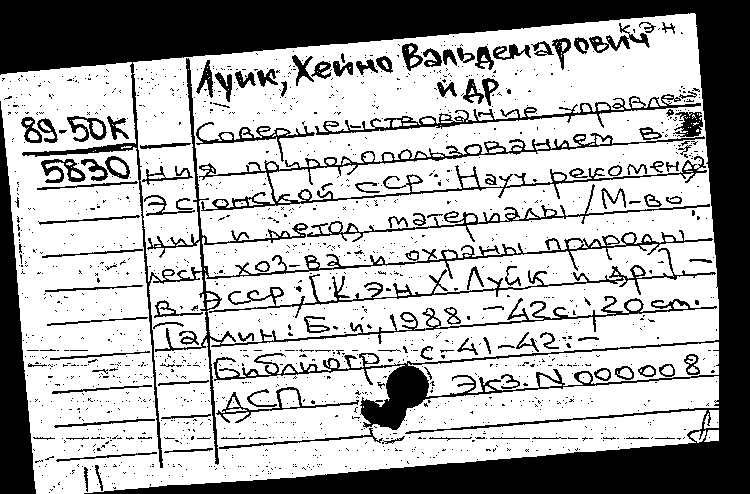 к.э.н.
Луик, Хейно Вальдемарович
и др.
89-50К
5830
Совершенствование управле-
ния природопользованием в
Эстонской ССР: Науч. рекоменда
ции и метод. материалы / М-во
лесн. хоз-ва и охраны природы
в ЭССР; [К.э.н. Х. Луйк и др.]. –
Таллин: Б. и., 1988. – 42с.; 20см.
Библиогр.: с. 41-42. –
ДСП. Экз. N 000008.
11